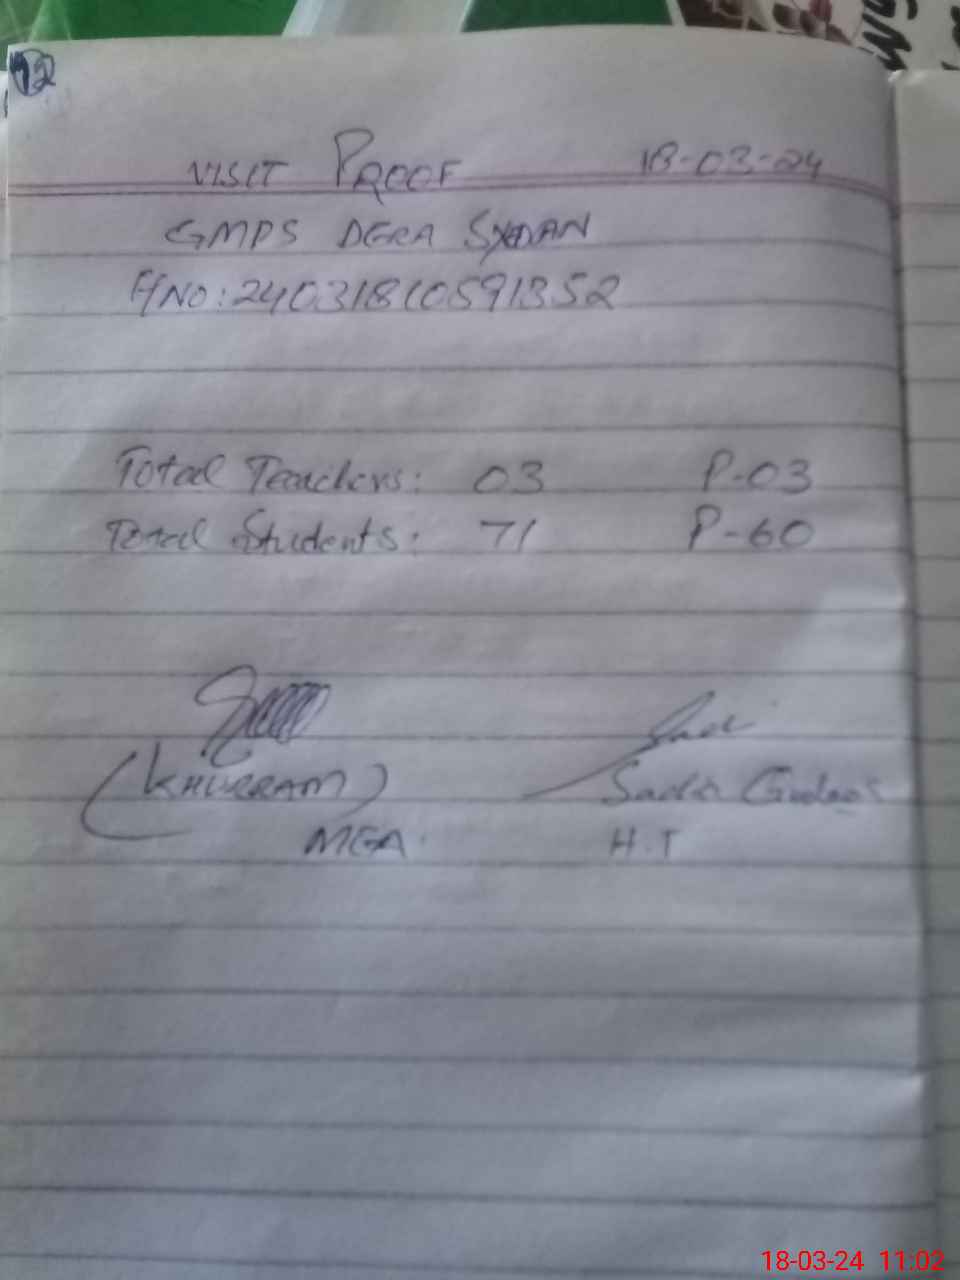 12
VISIT PROOF 18-03-24
GMPS DERA
H NO: 24031810591352
Total Teachers: 03 P-03
Total Students: 71 P-60
(KHURRAM)
MEA.
H.T
18-03-24 11:02